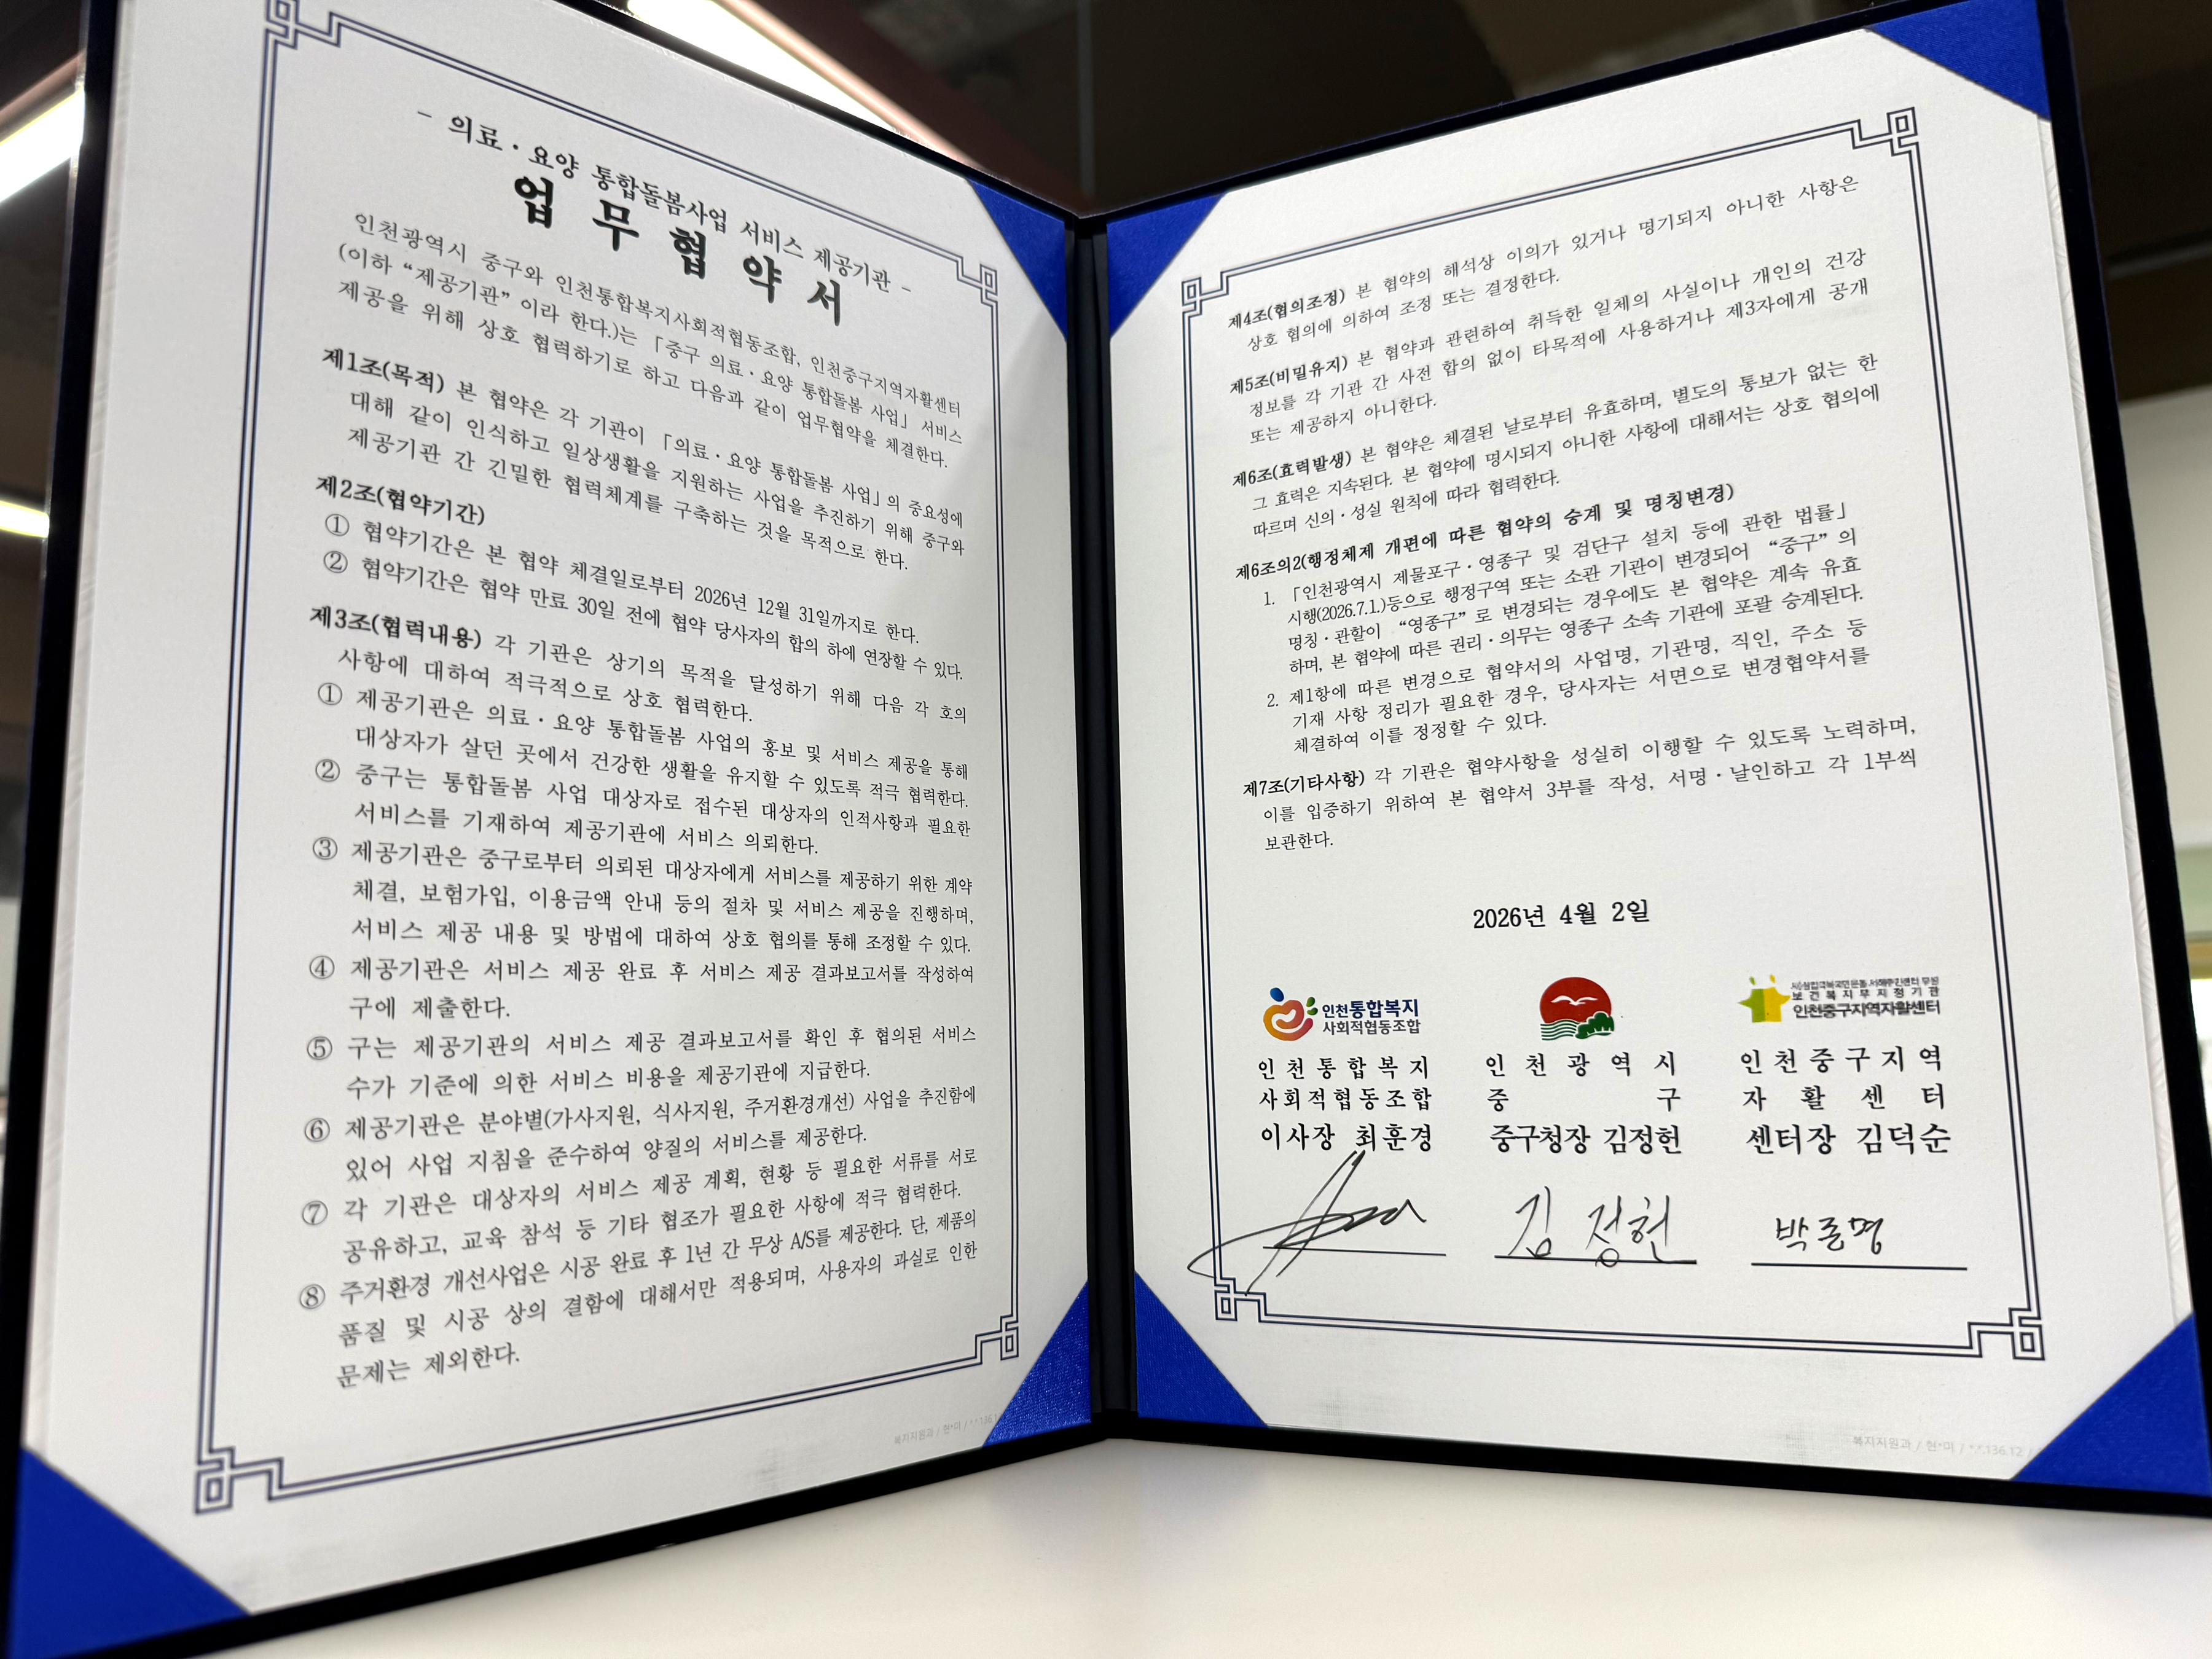 - 의료·요양 통합돌봄사업 서비스 제공기관 -
업 무 협 약 서
인천광역시 중구와 인천통합복지사회적협동조합, 인천중구지역자활센터
(이하 “제공기관” 이라 한다.)는 「중구 의료·요양 통합돌봄 사업」 서비스
제공을 위해 상호 협력하기로 하고 다음과 같이 업무협약을 체결한다.
제1조(목적) 본 협약은 각 기관이 「의료·요양 통합돌봄 사업」의 중요성에
대해 같이 인식하고 일상생활을 지원하는 사업을 추진하기 위해 중구와
제공기관 간 긴밀한 협력체계를 구축하는 것을 목적으로 한다.
제2조(협약기간)
① 협약기간은 본 협약 체결일로부터 2026년 12월 31일까지로 한다.
② 협약기간은 협약 만료 30일 전에 협약 당사자의 합의 하에 연장할 수 있다.
제3조(협력내용) 각 기관은 상기의 목적을 달성하기 위해 다음 각 호의
사항에 대하여 적극적으로 상호 협력한다.
① 제공기관은 의료·요양 통합돌봄 사업의 홍보 및 서비스 제공을 통해
대상자가 살던 곳에서 건강한 생활을 유지할 수 있도록 적극 협력한다.
② 중구는 통합돌봄 사업 대상자로 접수된 대상자의 인적사항과 필요한
서비스를 기재하여 제공기관에 서비스 의뢰한다.
③ 제공기관은 중구로부터 의뢰된 대상자에게 서비스를 제공하기 위한 계약
체결, 보험가입, 이용금액 안내 등의 절차 및 서비스 제공을 진행하며,
서비스 제공 내용 및 방법에 대하여 상호 협의를 통해 조정할 수 있다.
④ 제공기관은 서비스 제공 완료 후 서비스 제공 결과보고서를 작성하여
구에 제출한다.
⑤ 구는 제공기관의 서비스 제공 결과보고서를 확인 후 협의된 서비스
수가 기준에 의한 서비스 비용을 제공기관에 지급한다.
⑥ 제공기관은 분야별(가사지원, 식사지원, 주거환경개선) 사업을 추진함에
있어 사업 지침을 준수하여 양질의 서비스를 제공한다.
⑦ 각 기관은 대상자의 서비스 제공 계획, 현황 등 필요한 서류를 서로
공유하고, 교육 참석 등 기타 협조가 필요한 사항에 적극 협력한다.
⑧ 주거환경 개선사업은 시공 완료 후 1년 간 무상 A/S를 제공한다. 단, 제품의
품질 및 시공 상의 결함에 대해서만 적용되며, 사용자의 과실로 인한
문제는 제외한다.
복지지원과 / 현*미 / *.*.136.1
제4조(협의조정) 본 협약의 해석상 이의가 있거나 명기되지 아니한 사항은
상호 협의에 의하여 조정 또는 결정한다.
제5조(비밀유지) 본 협약과 관련하여 취득한 일체의 사실이나 개인의 건강
정보를 각 기관 간 사전 합의 없이 타목적에 사용하거나 제3자에게 공개
또는 제공하지 아니한다.
제6조(효력발생) 본 협약은 체결된 날로부터 유효하며, 별도의 통보가 없는 한
그 효력은 지속된다. 본 협약에 명시되지 아니한 사항에 대해서는 상호 협의에
따르며 신의·성실 원칙에 따라 협력한다.
제6조의2(행정체제 개편에 따른 협약의 승계 및 명칭변경)
1. 「인천광역시 제물포구·영종구 및 검단구 설치 등에 관한 법률」
시행(2026.7.1.)등으로 행정구역 또는 소관 기관이 변경되어 “중구” 의
명칭·관할이 “영종구” 로 변경되는 경우에도 본 협약은 계속 유효
하며, 본 협약에 따른 권리·의무는 영종구 소속 기관에 포괄 승계된다.
2. 제1항에 따른 변경으로 협약서의 사업명, 기관명, 직인, 주소 등
기재 사항 정리가 필요한 경우, 당사자는 서면으로 변경협약서를
체결하여 이를 정정할 수 있다.
제7조(기타사항) 각 기관은 협약사항을 성실히 이행할 수 있도록 노력하며,
이를 입증하기 위하여 본 협약서 3부를 작성, 서명·날인하고 각 1부씩
보관한다.
2026년 4월 2일
인천통합복지
사회적협동조합
보건복지부지정기관
인천중구지역자활센터
인천통합복지 인천광역시 인천중구지역
사회적협동조합 중구 자활센터
이사장 최훈경 중구청장 김정헌 센터장 김덕순
김정헌
복지지원과 / 현*미 / *.*.136.12 /